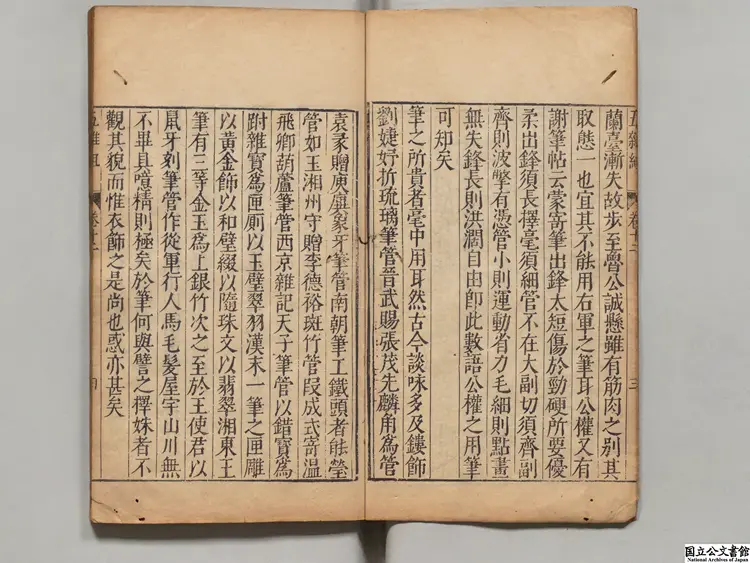 五雜組 卷十二 三
蘭臺漸失故步至魯公誠懸雖有筋肉之別其
取態一也宜其不能用右軍之筆耳公權又有
謝筆帖云蒙寄筆出鋒太短傷於勁硬所要優
柔出鋒須長擇毫須細管不在大副切須齊副
齊則波撆有憑管小則運動省力毛細則點畫
無失鋒長則洪潤自由卽此數語公權之用筆
可知矣
筆之所貴者毫中用耳然古今談咏多及鏤飾
劉婕妤折琉璃筆管晉武賜張茂先麟角爲管
袁彖贈庾廙象牙筆管南朝筆工鐵頭者能瑩
管如玉湘州守贈李德裕斑竹管段成式寄溫
飛卿葫蘆筆管西京雜記天子筆管以錯寶爲
跗雜寶爲匣厠以玉璧翠羽漢末一筆之匣雕
以黃金飾以和璧綴以隨珠文以翡翠湘東王
筆有三等金玉爲上銀竹次之至於王使君以
鼠牙刻筆管作從軍行人馬毛髮屋宇山川無
不畢具噫精則極矣於筆何與譬之擇姝者不
觀其貌而惟衣飾之是尚也惑亦甚矣
五雜組 卷十二
国立公文書館
National Archives of Japan